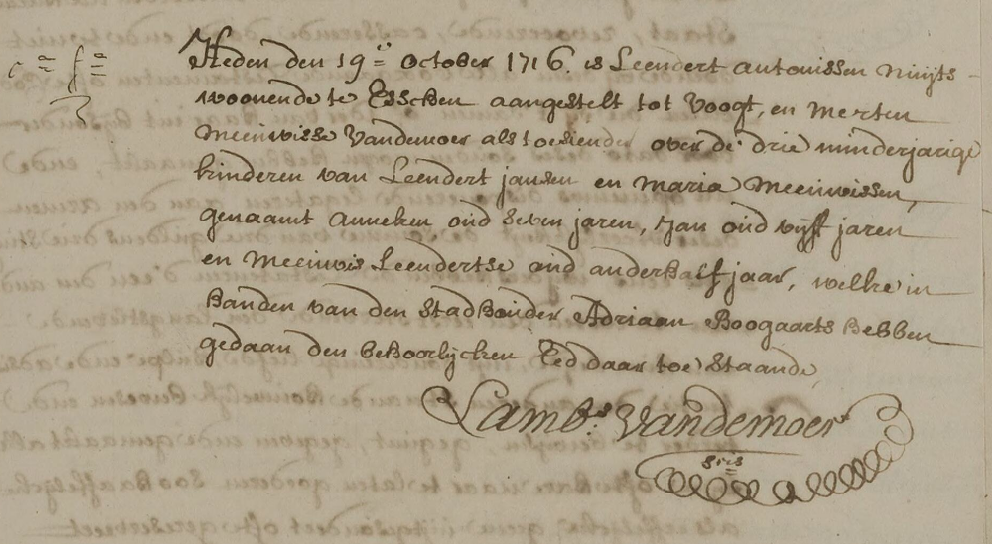 Heden den 19e october 1716. is Leendert antonissen nuijts
woonende te Esschen aangestelt tot voogt, en merten
meeuwisse vandemoer als toesiender over de drie minderjarige
kinderen van Leendert jansen en maria Meeuwissen,
genaamt anneken oud seven jaren, Jan oud vijff jaren
en meeuwis Leendertse oud anderhalf jaar, welke in
handen van den stadhouder Adriaan Boogaarts hebben
gedaan den behoorlijcken Eed daar toe staande,
Lambts. vandemoer
sris